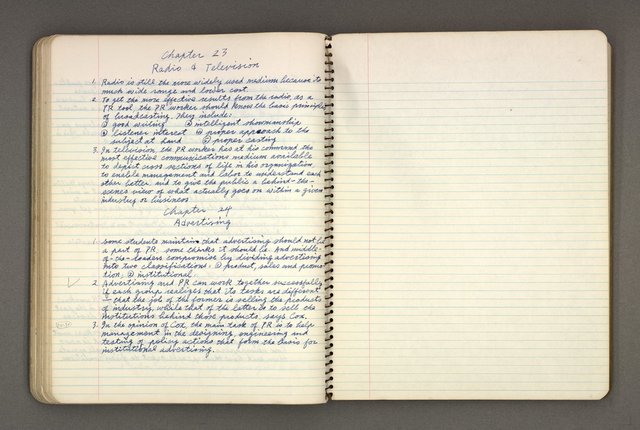 Chapter 23
Radio & Television
1. Radio is still the more widely used medium because its
much wide range and lower cost.
2. To get the more effective results from the radio, as a
PR tool, the PR worker should know the basic principles
of broadcasting. They include:
① good writing ② intelligent showmanship
③ listener interest ④ proper approach to the
subject at hand ⑤ proper casting
3. In television, the PR worker has at his command the
most effective communications medium available
to depict cross sections of life in his organization,
to enable management and labor to understand each
other better, and to give the public a behind-the-
scenes view of what actually goes on within a given
industry or business.
Chapter 24
Advertising
1. Some students maintain that advertising should not be
a part of PR, some thinks it should be. And middle-
of-the-roaders compromise by dividing advertising
into two classifications: ① product, sales and promo-
tion; ② institutional.
2. Advertising and PR can work together successfully
if each group realizes that its tasks are different
— that the job of the former is selling the products
of industry while that of the letter is to sell the
institutions behind those products, says Cox.
3. In the opinion of Cox, the main task of PR is to help
management in the designing, engineering and
testing of policy actions that form the basis for
institutional advertising.